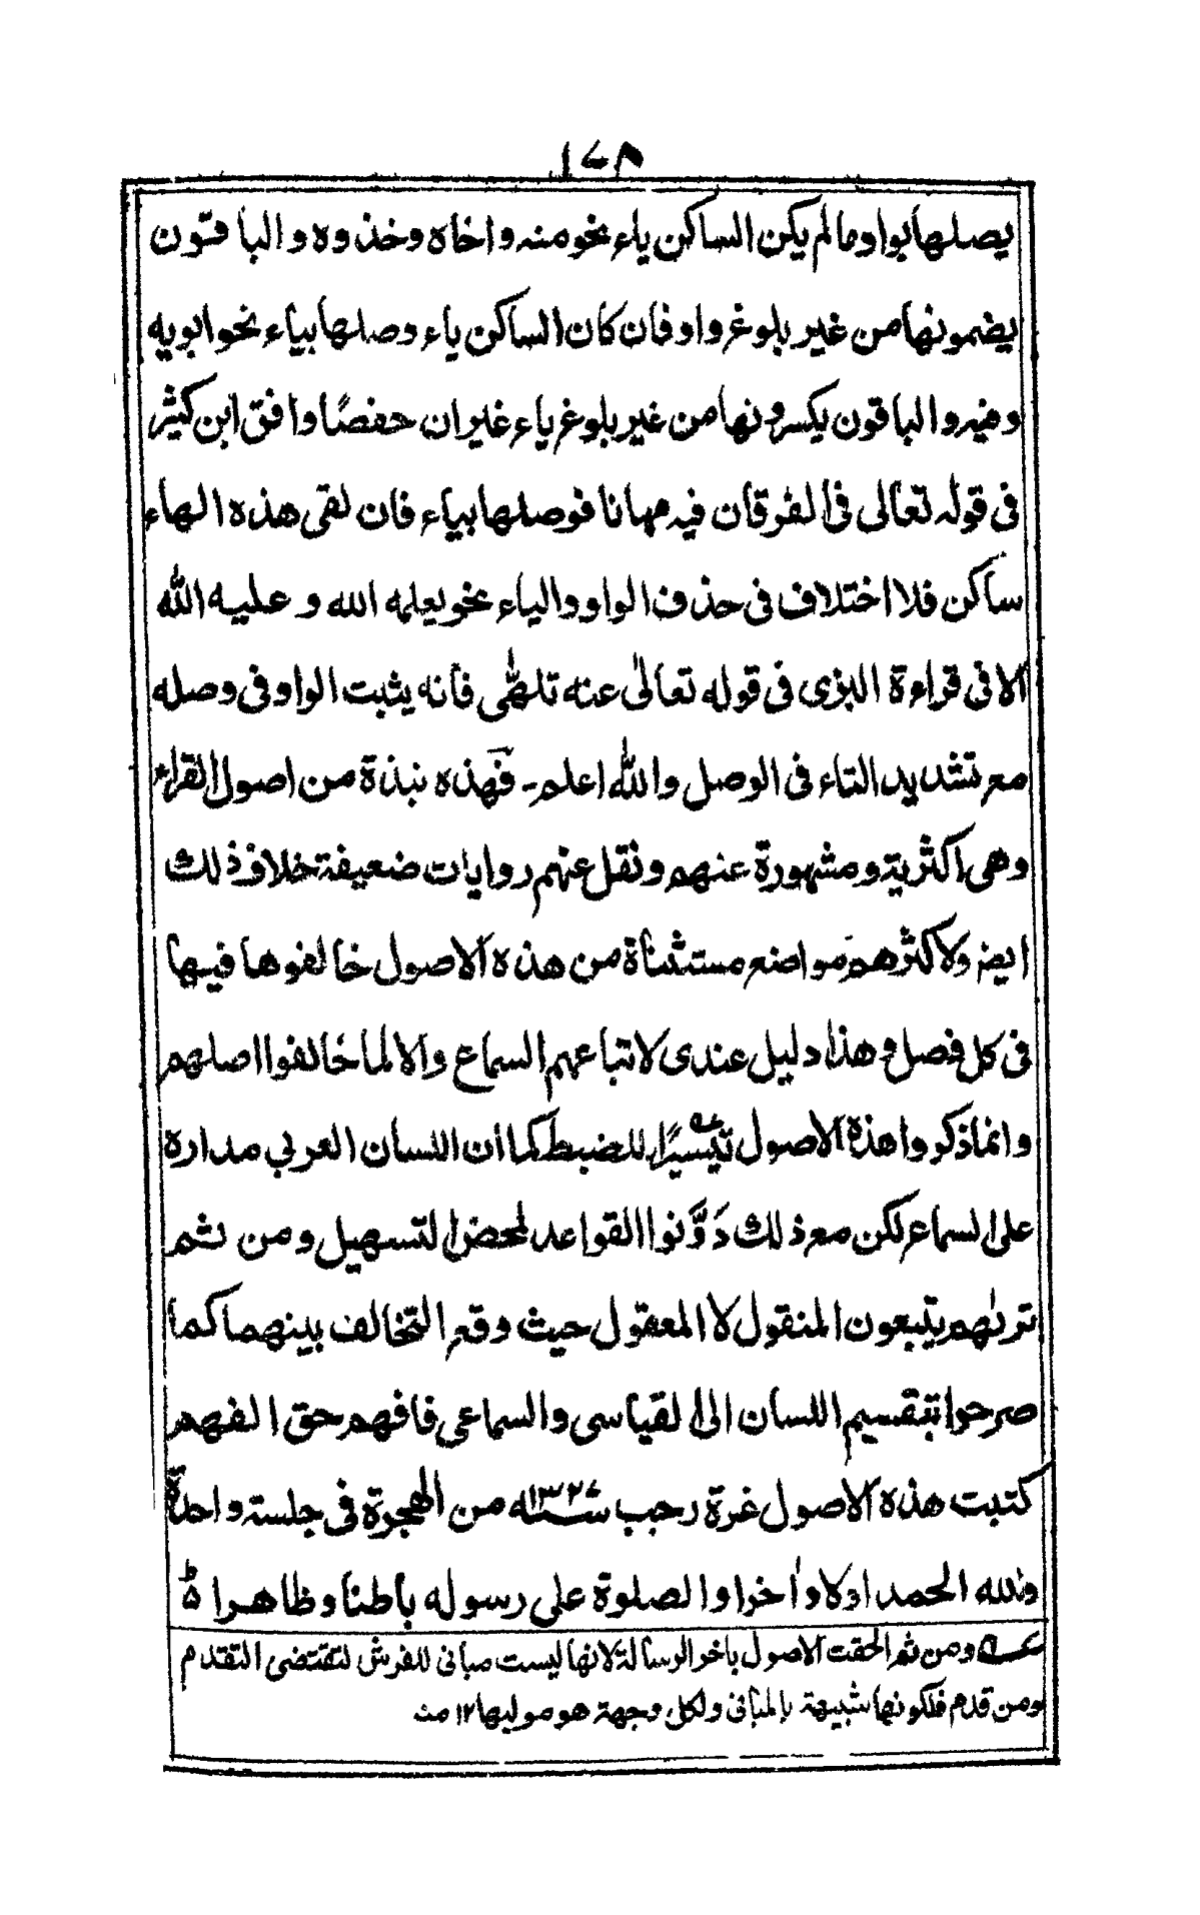 ١٤٨
يصلها بواو ما لم يكن الساكن ياء نحو منه واخاه وخذوه والباقون
يضمونها من غير بلوغ واو فان كان الساكن ياء وصلها بياء نحو ابويه
وفيه والباقون يكسرونها من غير بلوغ ياء غير ان حفصًا وافق ابن كثير
فى قوله تعالى فى الفرقان فيه مهانا فوصلها بياء فان لقى هذه الهاء
ساكن فلا اختلاف فى حذف الواو والياء نحو يعلمه الله و عليه الله
الا فى قراءة البزى فى قوله تعالىٰ عنه تلهّٰى فانه يثبت الواو فى وصله
مع تشديد التاء فى الوصل والله اعلم۔ فهذه نبذة من اصول القراء
وهى اكثرية ومشهورة عنهم ونقل عنهم روايات ضعيفة خلاف ذلك
ايضا ولاكثرهم مواضع مستثناة من هذه الاصول خالفوها فيها
فى كل فصل وهذا دليل عندى لاتباعهم السماع والا لما خالفوا اصلهم
وانما ذكروا هذة الاصول تيسيرًا للضبط كما أن اللسان العربي مداره
على السماع لكن مع ذلك دَوَّنوا القواعد لمحض التسهيل ومن ثم
ترىٰهم يتبعون المنقول لا المعقول حيث وقع التخالف بينهما كما
صرحوا بتقسيم اللسان الى القياسى والسماعى فافهم حق الفهم
كتبت هذه الاصول غرة رجب سنه ١٣٢٧ من الهجرة فى جلسة واحدة
ولله الحمد اولا واٰخرا والصلوة على رسوله باطنا وظاهرا
عه ومن ثم الحقت الاصول باخر الرسالة لانها ليست مبانى للفرش لتقتضى التقدم
ومن قدم فلكونها شبيهة بالمبانى ولكل وجهة هو موليها ١٢ منه